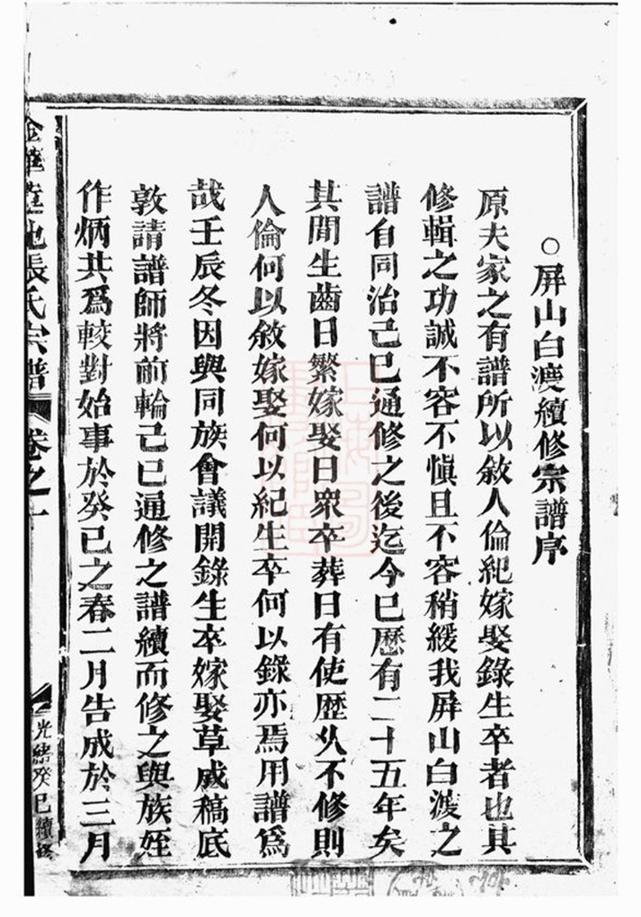 ○屏山白渡續修宗譜序
原夫家之有譜所以敘人倫紀嫁娶錄生卒者也其
修輯之功誠不容不慎且不容稍緩我屏山白渡之
譜自同治己巳通修之後迄今已歷有二十五年矣
其間生齒日繁嫁娶日衆卒葬日有使歷久不修則
人倫何以敘嫁娶何以紀生卒何以錄亦焉用譜爲
哉壬辰冬因與同族會議開錄生卒嫁娶草成稿底
敦請譜師將前輪己巳通修之譜續而修之與族姪
作炳共爲較對始事於癸巳之春二月告成於三月
張氏宗譜
卷之一
光緒癸巳續修